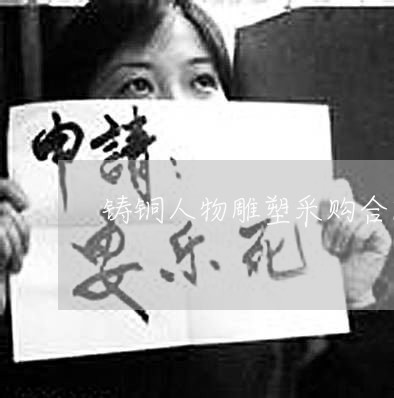 申請：
铸铜人物雕塑采购合
安乐死